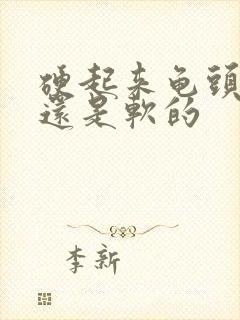 硬起来龟頭
還是軟的
李新